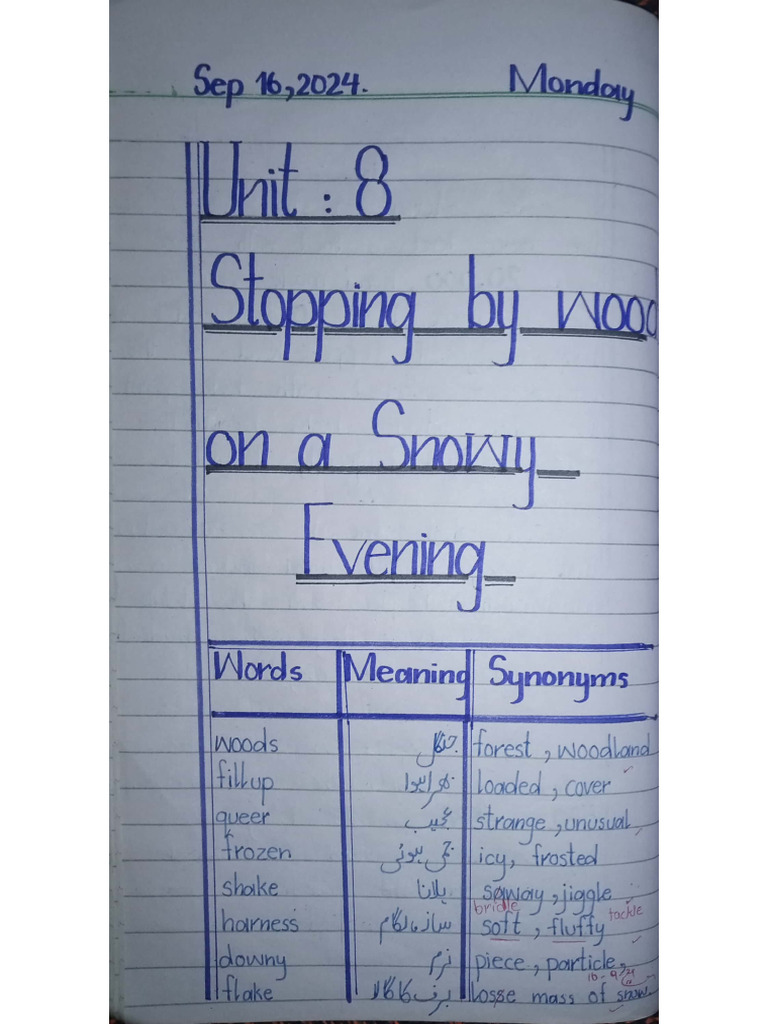 Sep 16, 2024. Monday
Unit : 8
Stopping by wood
on a Snowy
Evening
Words Meaning Synonyms
woods جنگل forest, woodland
fill up بھرا ہوا loaded, cover
queer عجیب strange, unusual
frozen جمی ہوئی icy, frosted
shake ہلانا sqway, jiggle
bridle tackle
harness ساز، لگام soft, fluffy
downy نرم piece, particle,
flake برف کا گالا losse mass of snow.